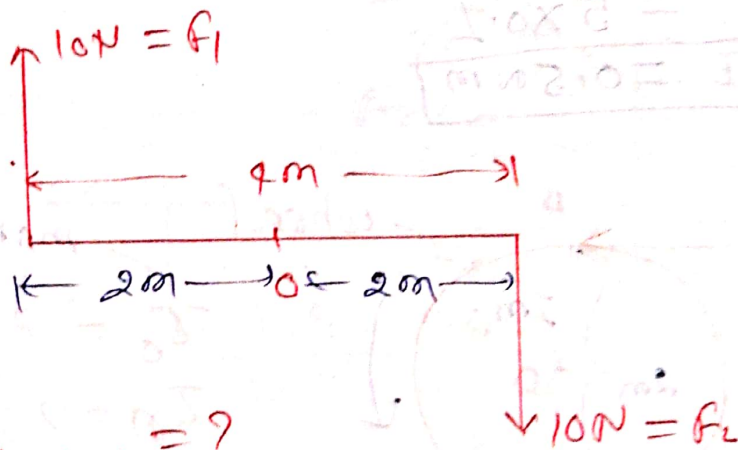 10N = F1
4m
2m O 2m
= ?
10N = F2